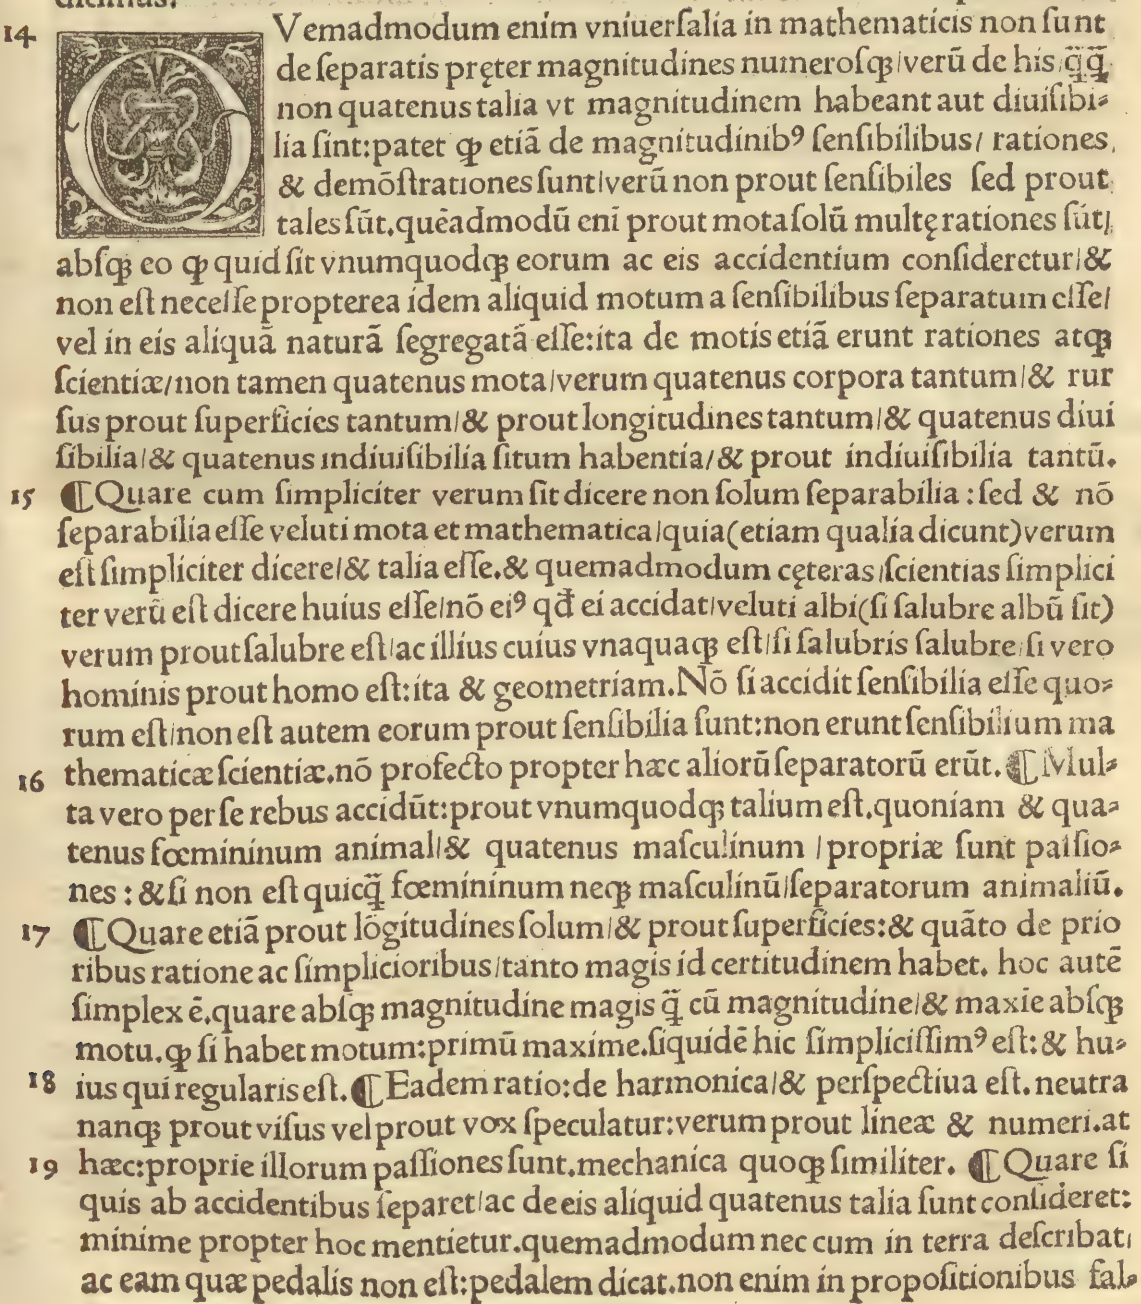 14 QVemadmodum enim vniuerſalia in mathematicis non ſunt
de ſeparatis pręter magnitudines numeroſqꝫ/verū de his q̄q̄
non quatenus talia vt magnitudinem habeant aut diuiſibi-
lia ſint:patet ꝙ etiā de magnitudinibꝰ ſenſibilibus/ rationes
& demōſtrationes ſunt/verū non prout ſenſibiles ſed prout
tales ſūt.quēadmodū eni prout mota ſolū multę rationes ſūt/
abſqꝫ eo ꝙ quid ſit vnumquodqꝫ eorum ac eis accidentium conſideretur/&
non eſt neceſſe propterea idem aliquid motum a ſenſibilibus ſeparatum eſſe/
vel in eis aliquā naturā ſegregatā eſſe:ita de motis etiā erunt rationes atqꝫ
ſcientiæ/non tamen quatenus mota/verum quatenus corpora tantum/& rur
ſus prout ſuperficies tantum/& prout longitudines tantum/& quatenus diui
ſibilia/& quatenus indiuiſibilia ſitum habentia/& prout indiuiſibilia tantū.
15 ¶Quare cum ſimpliciter verum ſit dicere non ſolum ſeparabilia:ſed & nō
ſeparabilia eſſe veluti mota et mathematica/quia(etiam qualia dicunt)verum
eſt ſimpliciter dicere/& talia eſſe.& quemadmodum cęteras/ſcientias ſimplici
ter verū eſt dicere huius eſſe/nō eiꝰ qđ ei accidat/veluti albi(ſi ſalubre albū ſit)
verum prout ſalubre eſt/ac illius cuius vnaquaqꝫ eſt/ſi ſalubris ſalubre/ſi vero
hominis prout homo eſt:ita & geometriam.Nō ſi accidit ſenſibilia eſſe quo-
rum eſt/non eſt autem eorum prout ſenſibilia ſunt:non erunt ſenſibilium ma
16 thematicæ ſcientiæ.nō profecto propter hæc aliorū ſeparatorū erūt. ¶Mul-
ta vero per ſe rebus accidūt:prout vnumquodqꝫ talium eſt.quoniam & qua-
tenus fœmininum animal/& quatenus maſculinum /propriæ ſunt paſſio-
nes:&ſi non eſt quicq̄ fœmininum neqꝫ maſculinū/ſeparatorum animaliū.
17 ¶Quare etiā prout lōgitudines ſolum/& prout ſuperficies:& quāto de prio
ribus ratione ac ſimplicioribus/tanto magis id certitudinem habet. hoc autē
ſimplex ē.quare abſqꝫ magnitudine magis q̄ cū magnitudine/& maxie abſqꝫ
motu.ꝙ ſi habet motum:primū maxime.ſiquidē hic ſimpliciſſimꝰ eſt:& hu-
18 ius qui regularis eſt. ¶Eadem ratio:de harmonica/& perſpectiua eſt.neutra
nanqꝫ prout viſus vel prout vox ſpeculatur:verum prout lineæ & numeri.at
19 hæc:proprie illorum paſſiones ſunt.mechanica quoqꝫ ſimiliter. ¶Quare ſi
quis ab accidentibus ſeparet/ac de eis aliquid quatenus talia ſunt conſideret:
minime propter hoc mentietur.quemadmodum nec cum in terra deſcribat/
ac eam quæ pedalis non eſt:pedalem dicat.non enim in propoſitionibus fal-